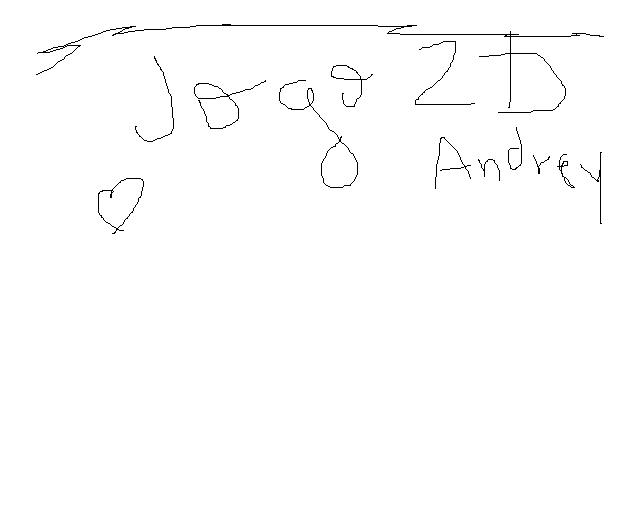 Jogo 2D
Andrey